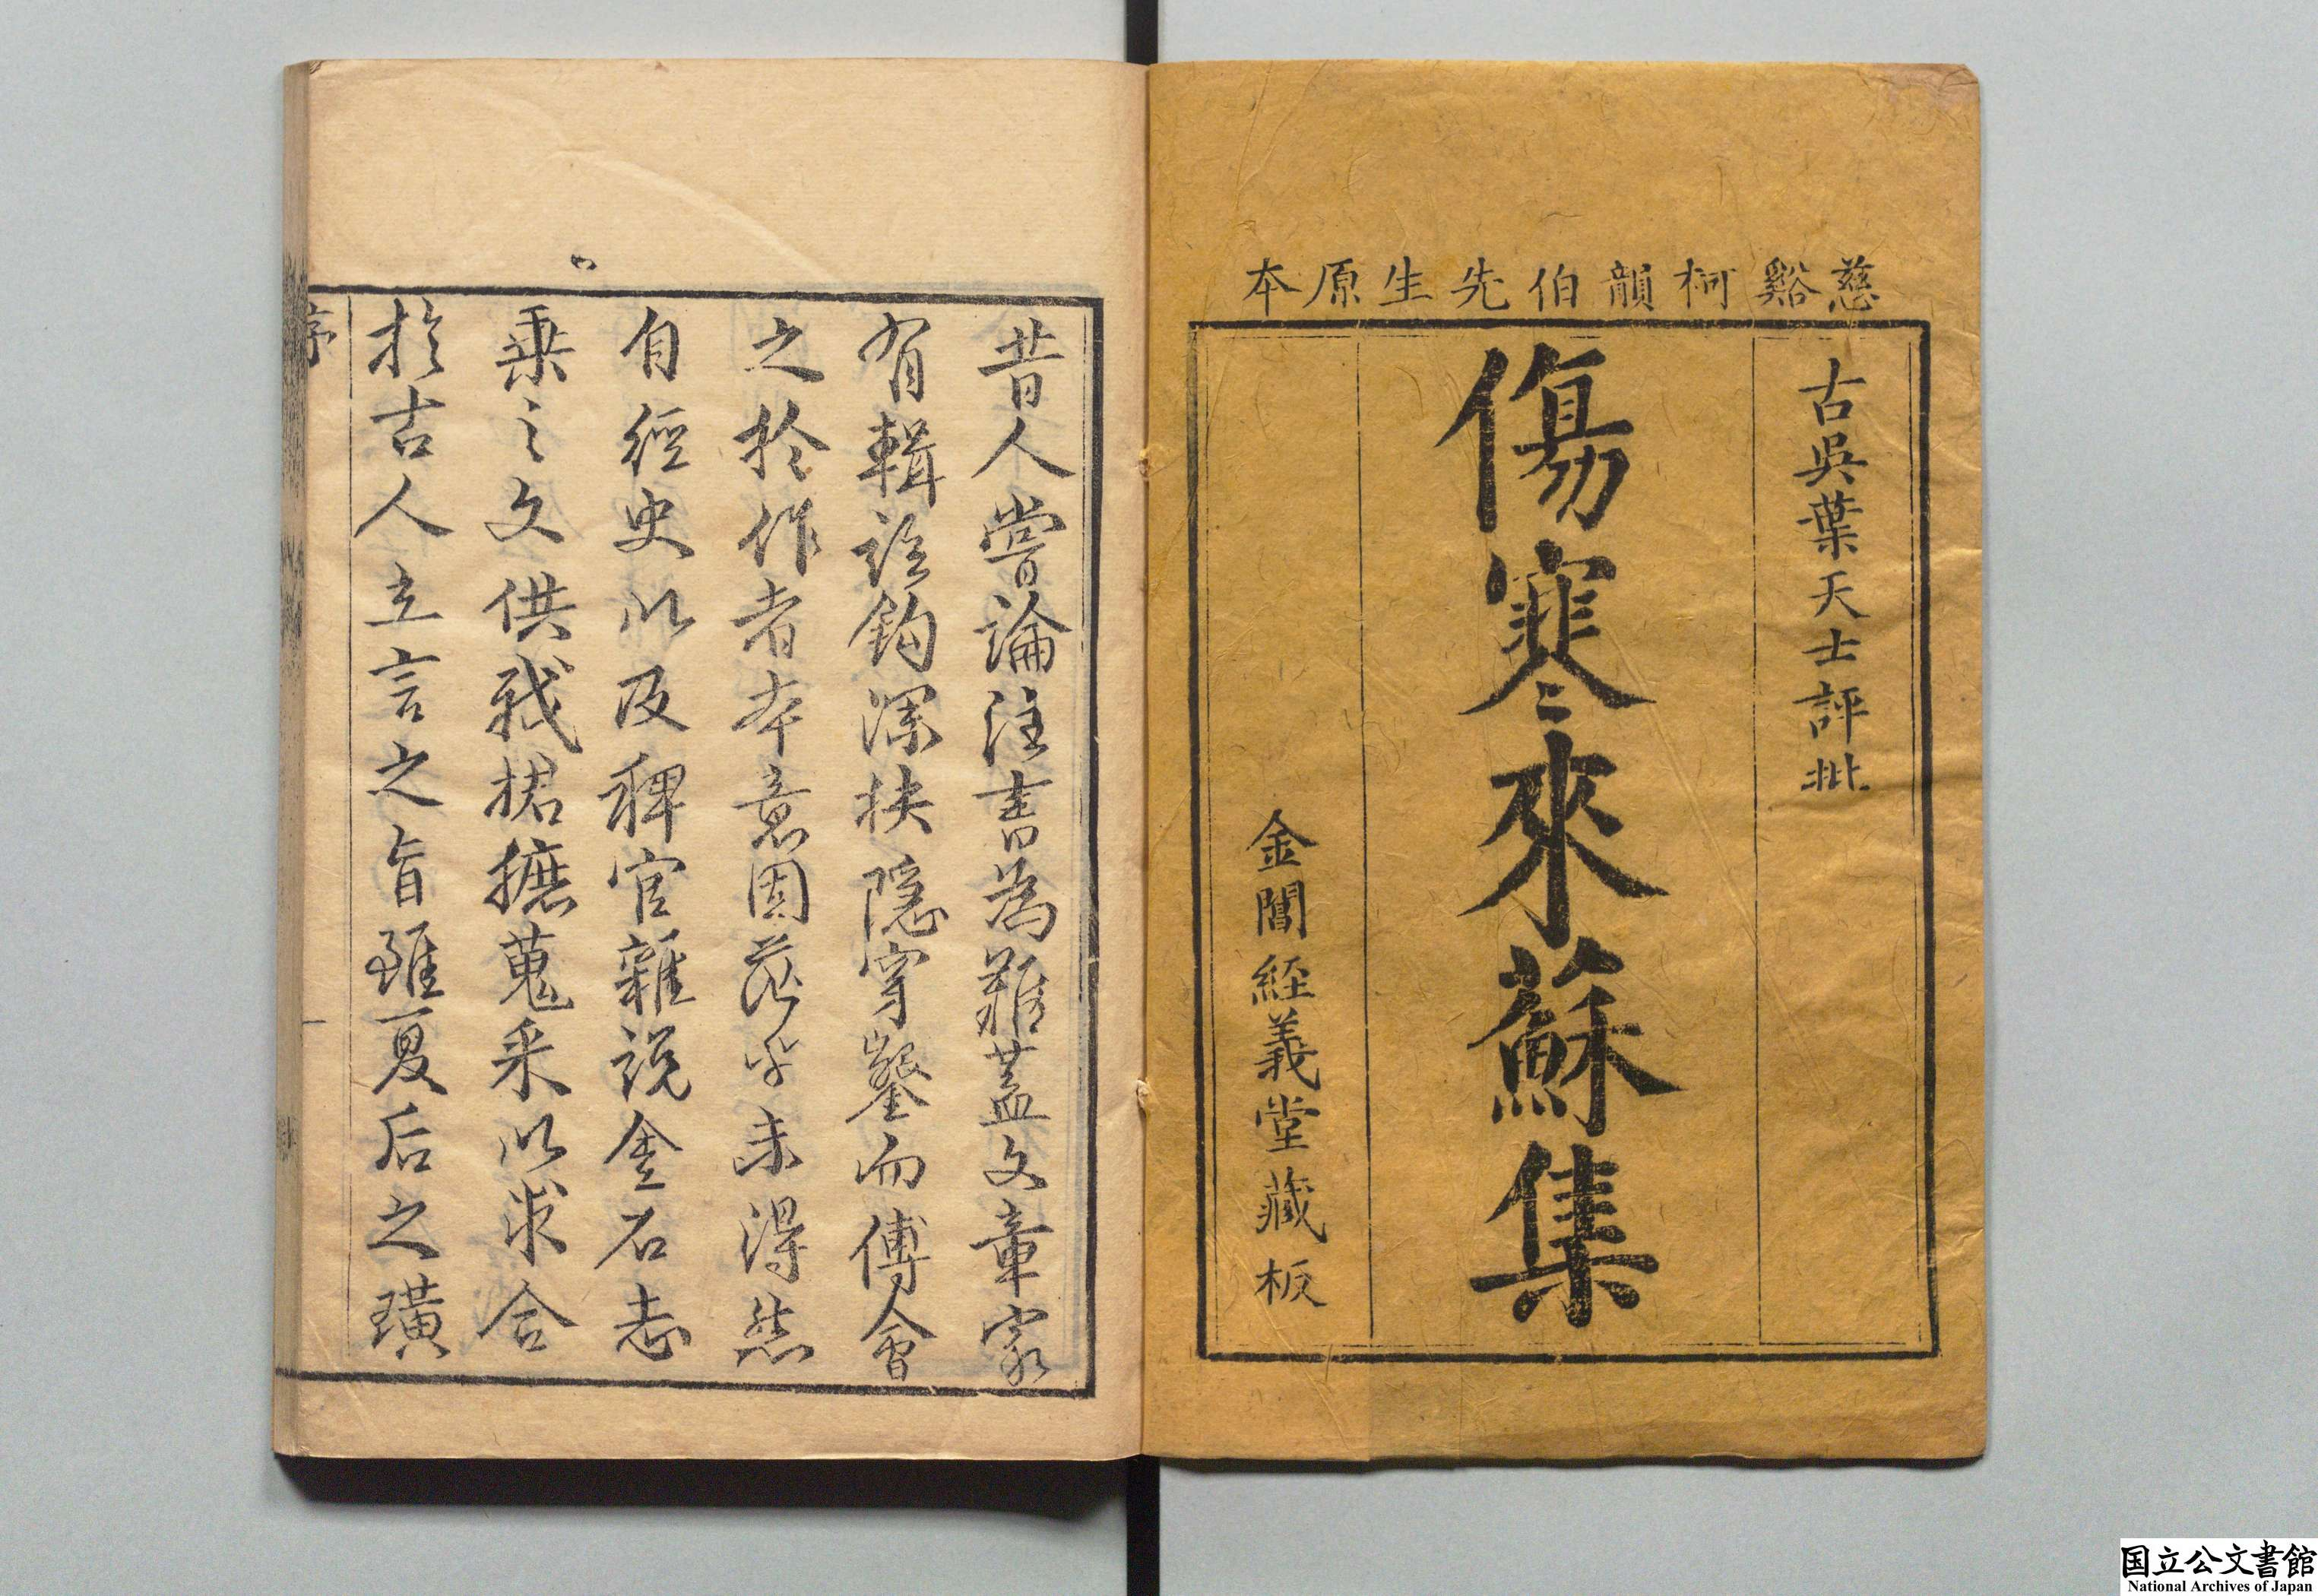 慈谿柯韻伯先生原本
古吳葉天士評批
傷寒來蘇集
金閶經義堂藏板
昔人嘗論注書為難蓋文章家
有輯詮鈎深抉隱穿鑿而傅會
之於作者本意固茫乎未得然
自經史以及稗官雜説金石志
乘之文供我捃摭蒐采以求合
於古人立言之旨雖夏后之璜
序
一
国立公文書館
National Archives of Japan